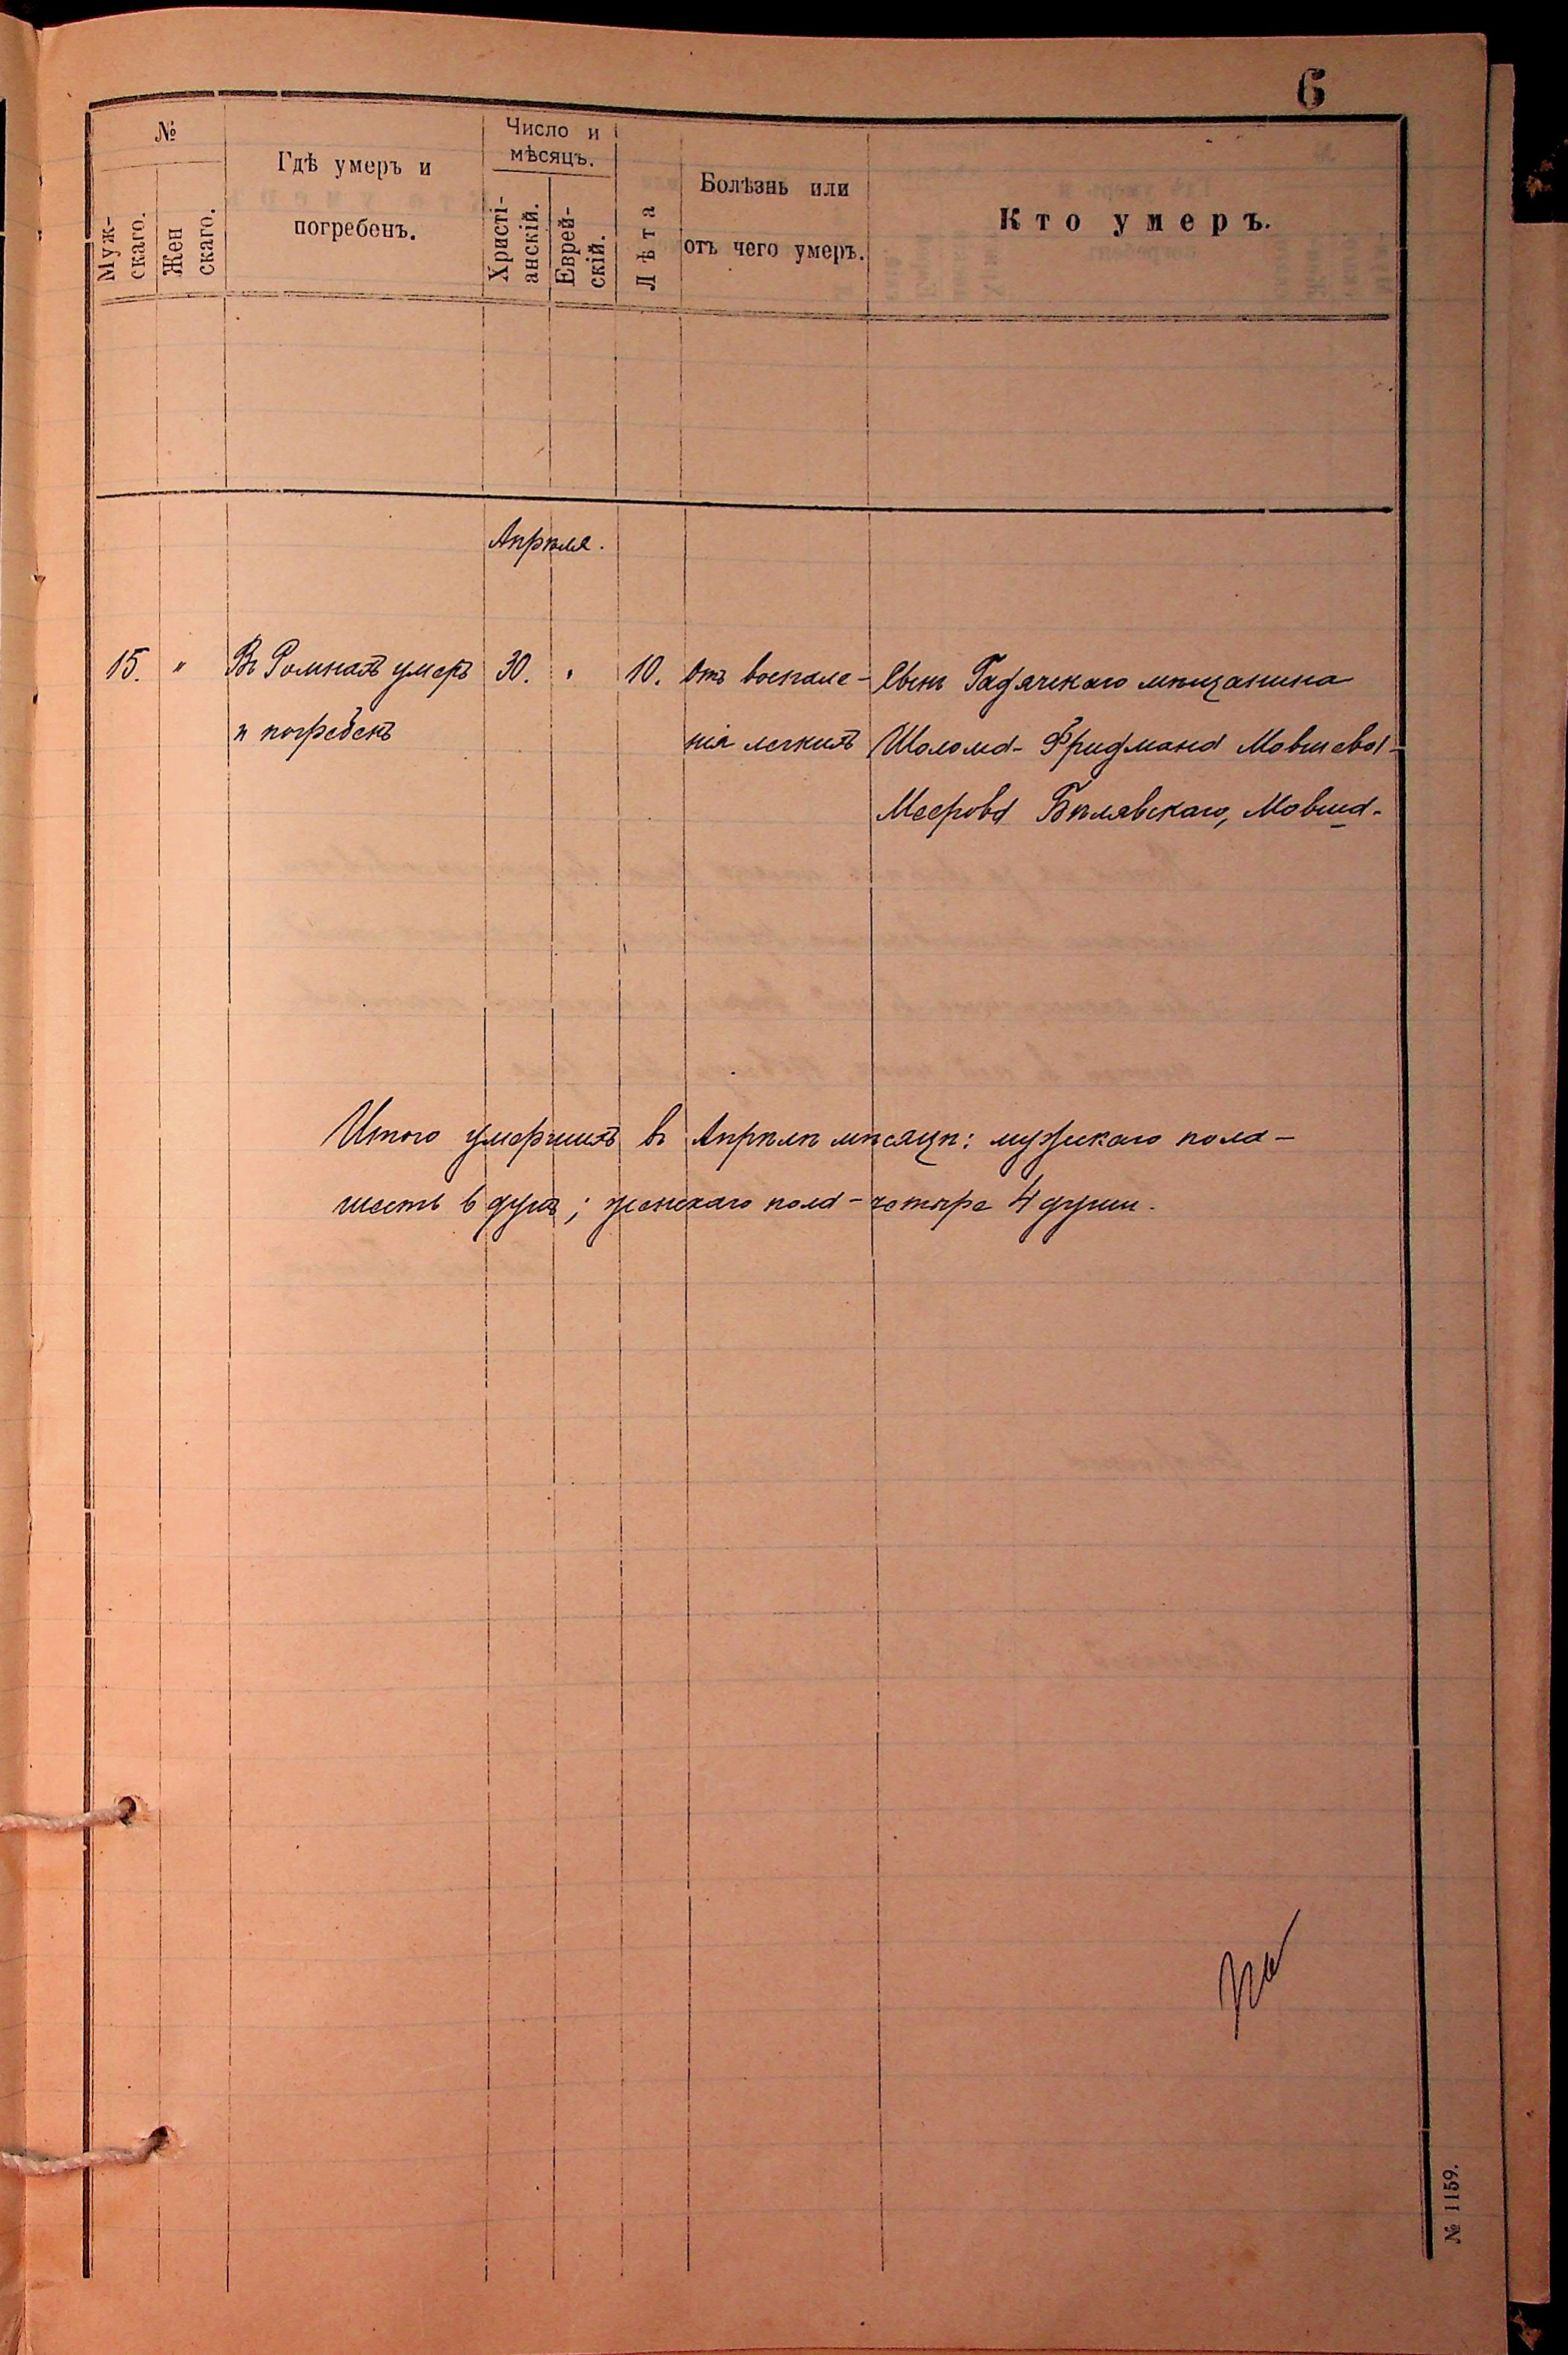 6
№
Муж-
скаго.
Жен
скаго.
Гдѣ умеръ и
погребенъ.
Число и
мѣсяцъ.
Христі-
анскій.
Еврей-
скій.
Лѣта
Болѣзнь или
отъ чего умеръ.
Кто умеръ.
Апрѣля.
15. " Въ Ромнахъ умеръ 30. " 10. Отъ воспале- Сынъ Гадячскаго мѣщанина
и погребенъ нія легкихъ Шолома-Фридмана Мовшева-
Меерова Бѣлявскаго, Мовша.
Итого умершихъ въ Апрѣлѣ мѣсяцѣ: мужскаго пола-
шесть 6 душъ; женскаго пола-четыре 4 души.
№ 1159.